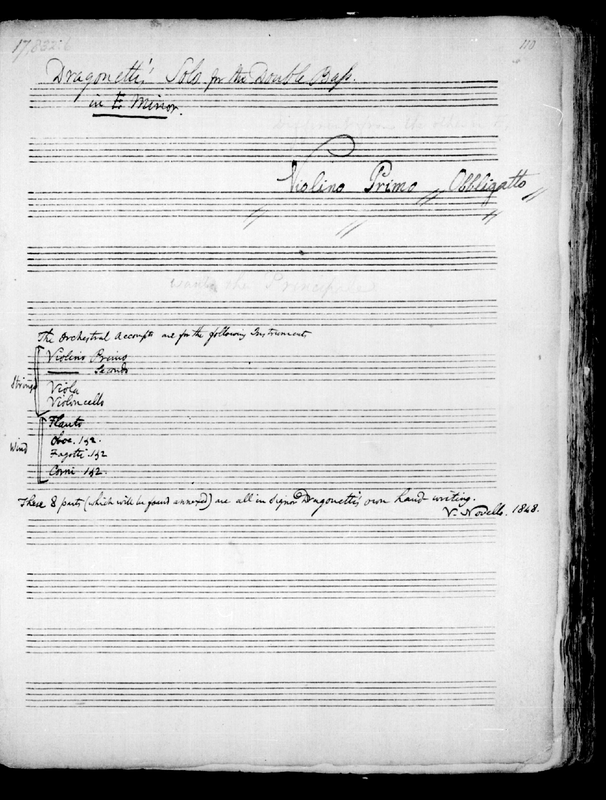 17,832:6
110
Dragonetti's Solo for the Double Bass.
in E Minor.
Violino Primo Obbligatto
wants the Principale
The Orchestral Accompts are for the following Instruments
Violino Primo
——— Secondo
Strings
Viola
Violoncello
Flauto
Oboe. 1 & 2.
Wind
Fagotti 1 & 2
Corni 1 & 2.
These 8 parts (which will be found annexed) are all in Signor Dragonetti's own hand-writing.
V. Novello. 1848.